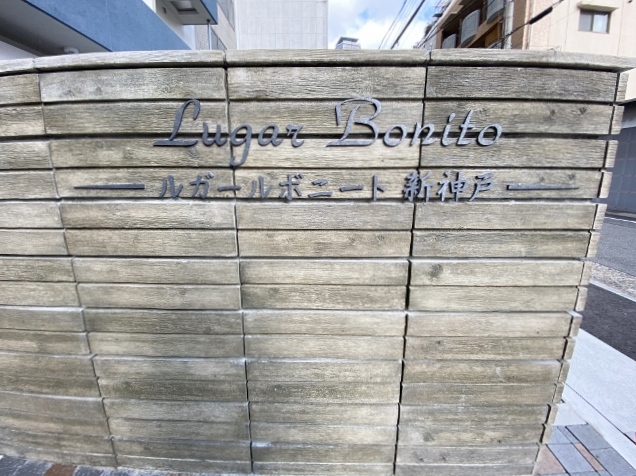 Lugar Bonito
ルガールボニート 新神戸